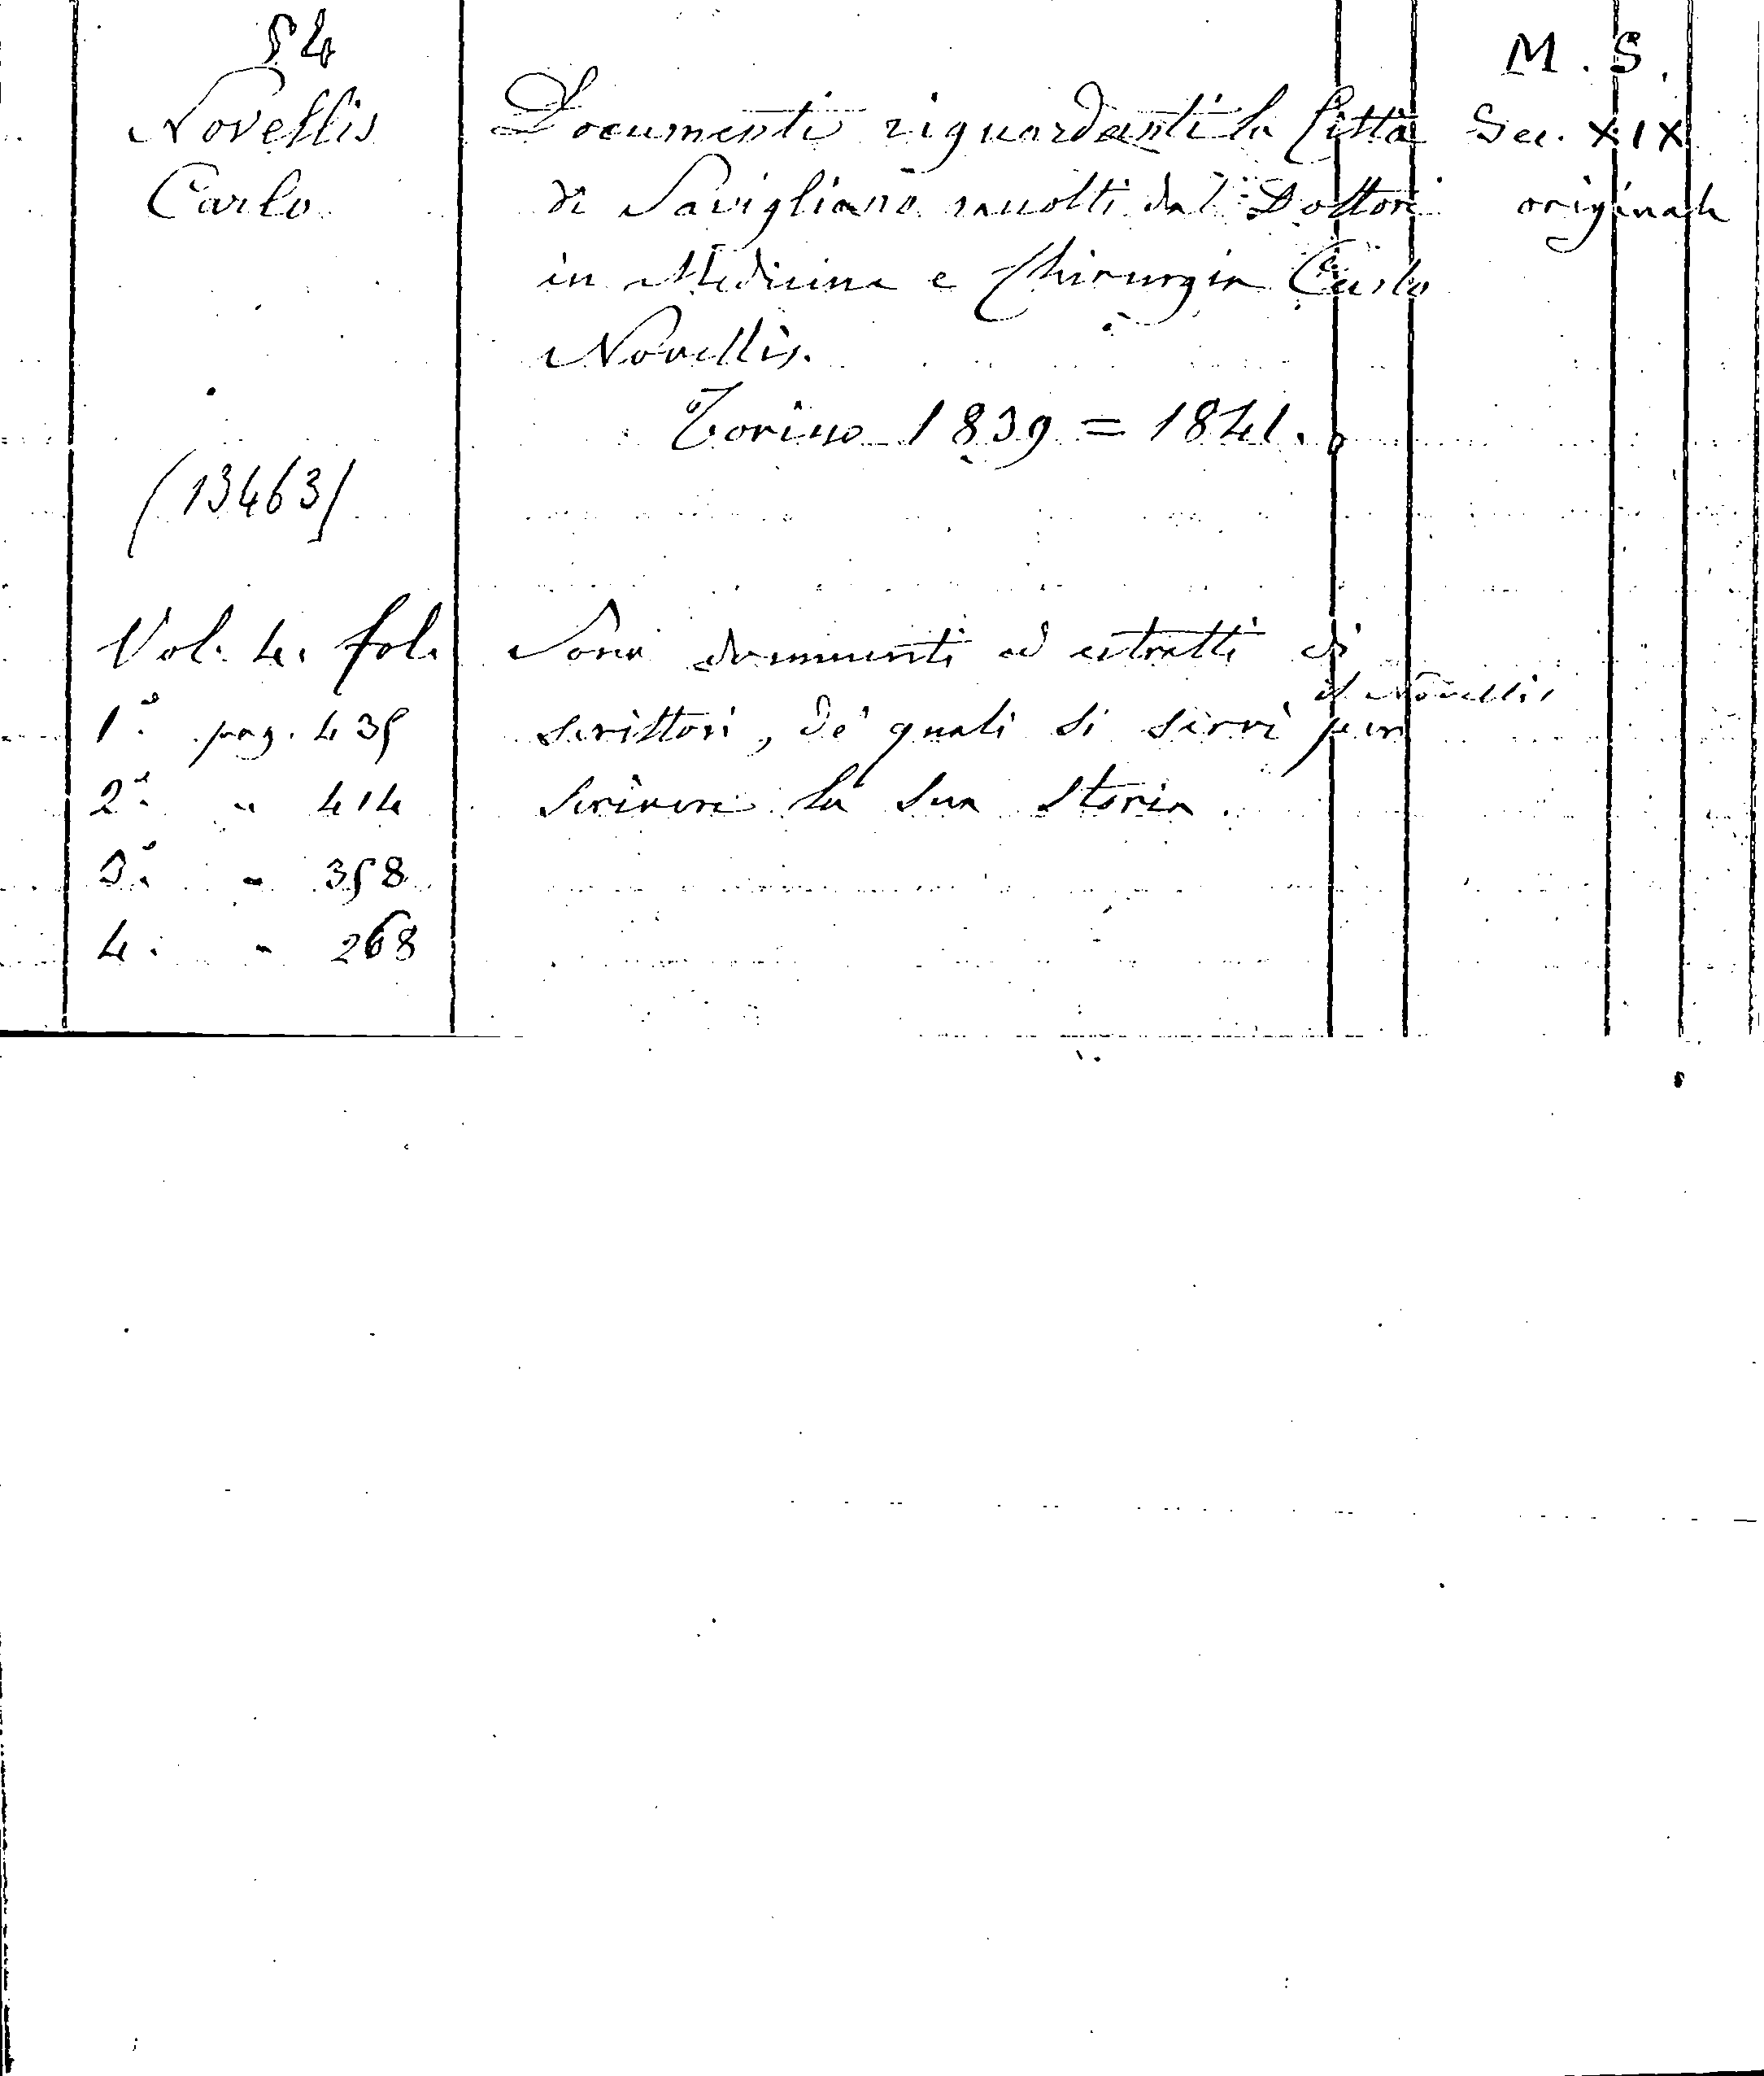 54
M. S.
Novellis
Carlo
Documenti riguardanti la Città
di Savigliano raccolti dal Dottore
in Medicina e Chirurgia Carlo
Novellis.
Torino 1839 = 1841.
Sec. XIX
originale
(13463)
Vol. 4. fol.
1.° pag. 435
2.° " 414
3.° " 358
4. " 268
Sono documenti ed estratti di
scrittori, de' quali si servì il Novellis per
scrivere la sua storia.